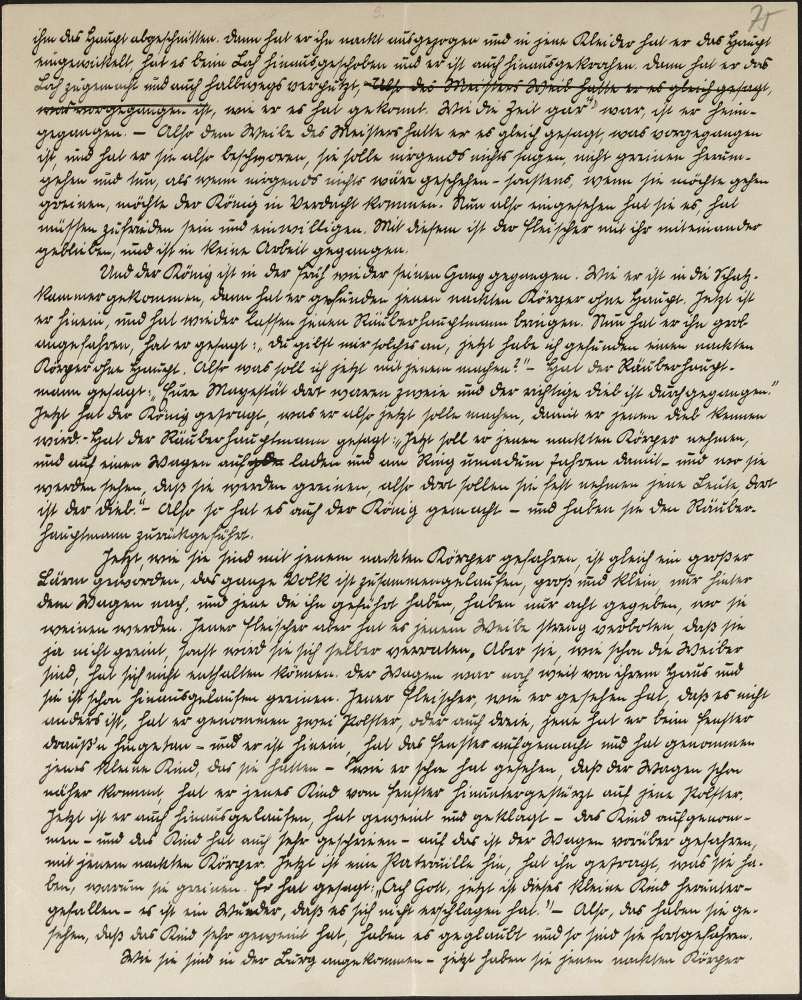 70
ihm das Haupt abgeschnitten. Dann hat er ihn nackt ausgezogen und in jene Kleider hat er das Haupt
eingewickelt, hat es beim Loch hinausgeschoben und er ist auch hinausgekrochen. Dann hat er das
Loch zugemacht und auch halbwegs verputzt, Also des Meisters Weib hatte er es gleich gesagt,
was vorgegangen ist, wie er es hat gekonnt. Wie die Zeit gar war, ist er heim-
gegangen. — Also dem Weibe des Meisters hatte er es gleich gesagt, was vorgegangen
ist, und hat er sie also beschworen, sie solle nirgends nichts sagen, nicht greinen herum-
gehen und tun, als wenn nirgends nichts wäre geschehen – sonstens, wenn sie möchte gehen
greinen, möchte der König in Verdacht kommen. Nun also eingesehen hat sie es, hat
müssen zufrieden sein und einwilligen. Mit diesem ist der Fleischer mit ihr miteinander
geblieben, und ist in keine Arbeit gegangen.
Und der König ist in der Früh wieder seinen Gang gegangen. Wie er ist in die Schatz-
kammer gekommen, dann hat er gefunden jenen nackten Körper ohne Haupt. Jetzt ist
er hinein, und hat wieder lassen jenen Räuberhauptmann bringen. Nun hat er ihn grob
angefahren, hat er gesagt: „Du gibst mir solches an, jetzt habe ich gefunden einen nackten
Körper ohne Haupt. Also was soll ich jetzt mit jenem machen?" – Hat der Räuberhaupt-
mann gesagt: „Eure Mayestät dort waren zweie und der richtige Dieb ist durchgegangen."
Jetzt hat der König gefragt, was er also jetzt solle machen, damit er jenen Dieb kennen
wird. – Hat der Räuberhauptmann gesagt: „Jetzt soll er jenen nackten Körper nehmen,
und auf einen Wagen auf laden und am Ring umadum fahren damit – und wo sie
werden sehen, daß sie werden greinen, also dort sollen sie fest nehmen jene Leute, dort
ist der Dieb." – Also so hat es auch der König gemacht – und haben sie den Räuber-
hauptmann zurückgeführt.
Jetzt, wie sie sind mit jenem nackten Körper gefahren, ist gleich ein großer
Lärm geworden, das ganze Volk ist zusammengelaufen, groß und klein, nur hinter
dem Wagen nach, und jene die ihn geführt haben, haben nur acht gegeben, wo sie
weinen werden. Jener Fleischer aber hat es jenem Weibe streng verboten, daß sie
ja nicht greint, sonst wird sie sich selber verraten. Aber sie, wie schon die Weiber
sind, hat sich nicht enthalten können. Der Wagen war noch weit von ihrem Haus und
sie ist schon hinausgelaufen greinen. Jener Fleischer, wie er gesehen hat, daß es nicht
anders ist, hat er genommen zwei Polster, oder auch dreie, jene hat er beim Fenster
drauß'n hingetan – und er ist hinein, hat das Fenster aufgemacht und hat genommen
jenes kleine Kind, das sie hatten – wie er schon hat gesehen, daß der Wagen schon
näher kommt, hat er jenes Kind vom Fenster hinuntergestürzt auf jene Polster.
Jetzt ist er auch hinausgelaufen, hat geweint und geklagt – das Kind aufgenom-
men – und das Kind hat auch sehr geschrieen – auf das ist der Wagen vorüber gefahren,
mit jenem nackten Körper. Jetzt ist eine Patrouille hin, hat ihn gefragt, was sie ha-
ben, warum sie greinen. Er hat gesagt: „Ach Gott, jetzt ist dieses kleine Kind herunter-
gefallen – es ist ein Wunder, daß es sich nicht erschlagen hat." – Also, das haben sie ge-
sehen, daß das Kind sehr geweint hat, haben es geglaubt und so sind sie fortgefahren.
Wie sie sind in der Burg angekommen – jetzt haben sie jenen nackten Körper